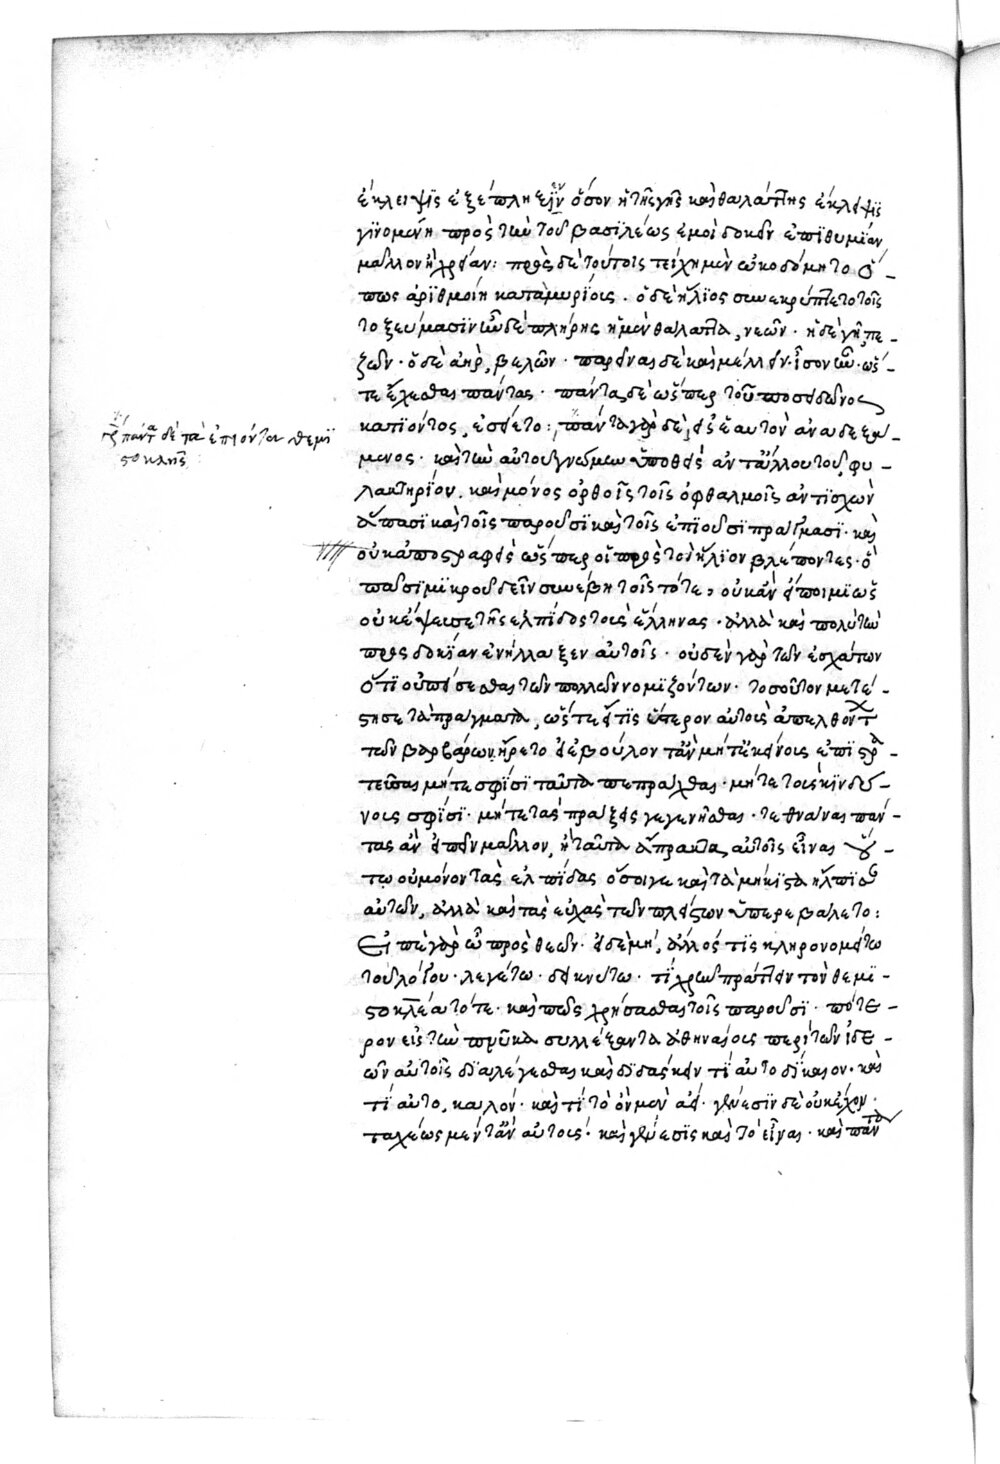 ἔκλειψις ἐξέπληξεν ὅσον ἡ τῆς γῆς καὶ θαλάττης ἔκλειψις
γινομένη πρὸς τὴν τοῦ βασιλέως ἐμοὶ δοκεῖν ἐπιθυμίαν
μᾶλλον ἢ χρείαν: πρὸς δὲ τούτοις τείχη μὲν ᾠκοδόμητο ὅ-
πως ἀριθμοίη κατὰ μυρίους. ὁ δὲ ἥλιος συνεκρύπτετο τοῖς
τοξεύμασιν ἦν δὲ πλήρης ἡ μὲν θάλαττα, νεῶν. ἡ δὲ γῆ, πε-
ζῶν. ὁ δὲ ἀὴρ, βελῶν. παρεῖναι δὲ καὶ μέλλειν ἴσον ἦν. ὥς-
τε ἔχεσθαι πάντας. πάντα δὲ ὥσπερ τοῦ ποσειδῶνος
κατιόντος, ἐσείετο: πάντα γὰρ δὲ, εἰς ἑαυτὸν ἀναδεξά-
μενος. καὶ τὴν αὑτοῦ γνώμην ὑποθεὶς ἀντ' ἄλλου του φυ-
λακτηρίου. καὶ μόνος ὀρθοῖς τοῖς ὀφθαλμοῖς ἀντισχὼν
ἅπασι καὶ τοῖς παροῦσι καὶ τοῖς ἐπιοῦσι πράγμασι. καὶ
οὐκ ἀποστραφεὶς ὥσπερ οἱ πρὸς τὸν ἥλιον βλέποντες. ὃ
πᾶσι μικροῦ δεῖν συνέβη τοῖς τότε, οὐκ ἂν εἴποιμι ὡς
οὐκ ἔψευσε τῆς ἐλπίδος τοὺς ἕλληνας. ἀλλὰ καὶ πολὺ τὴν
προσδοκίαν ἐνήλλαξεν αὐτοῖς. οὐδὲν γὰρ τῶν ἐσχάτων
ὅτι οὐ πείσεσθαι τῶν πολλῶν νομιζόντων. τοσοῦτον μετέ-
στησε τὰ πράγματα, ὥστε εἴ τις ὕστερον αὐτοὺς ἀπελθόντων
τῶν βαρβάρων ἤρετο εἰ ἐβούλοντ' ἂν μήτ' ἐκείνοις ἐπιστρα-
τεῦσαι μήτε σφίσι ταῦτα πεπρᾶχθαι. μήτε τοὺς κινδύ-
νους σφίσι. μήτε τὰς πράξεις γεγενῆσθαι. τεθνάναι πάν-
τας ἂν εἰπεῖν μᾶλλον, ἢ ταῦτα ἄπρακτα αὐτοῖς εἶναι οὕ-
τω οὐ μόνον τὰς ἐλπίδας ὅσοι γε καὶ τὰ μήκιστα ἤλπισαν
αὐτῶν, ἀλλὰ καὶ τὰς εὐχὰς τῶν πλείστων ὑπερεβάλετο:
Εἰπὲ γὰρ ὦ πρὸς θεῶν. εἰ δὲ μή, ἄλλος τις κληρονομείτω
τοῦ λόγου. λεγέτω. δεικνύτω. τί χρῆν πράττειν τὸν θεμι-
στοκλέα τότε. καὶ πῶς χρήσασθαι τοῖς παροῦσι. πότε-
ρον εἰς τὴν πνύκα συλλέξαντα ἀθηναίους περὶ τῶν ἰδε-
ῶν αὐτοῖς διαλέγεσθαι καὶ διδάσκειν τί αὐτὸ δίκαιον. καὶ
τί αὐτὸ, καλόν. καὶ τί τὸ ὂν μὲν ἀεί. γένεσιν δὲ οὐκ ἔχον.
ταχέως μέντ' ἂν αὐτοὺς. καὶ γένεσις καὶ τὸ εἶναι. καὶ πάντα
πάντα δὲ τὰ ἐπιόντα θεμι
στοκλῆς: